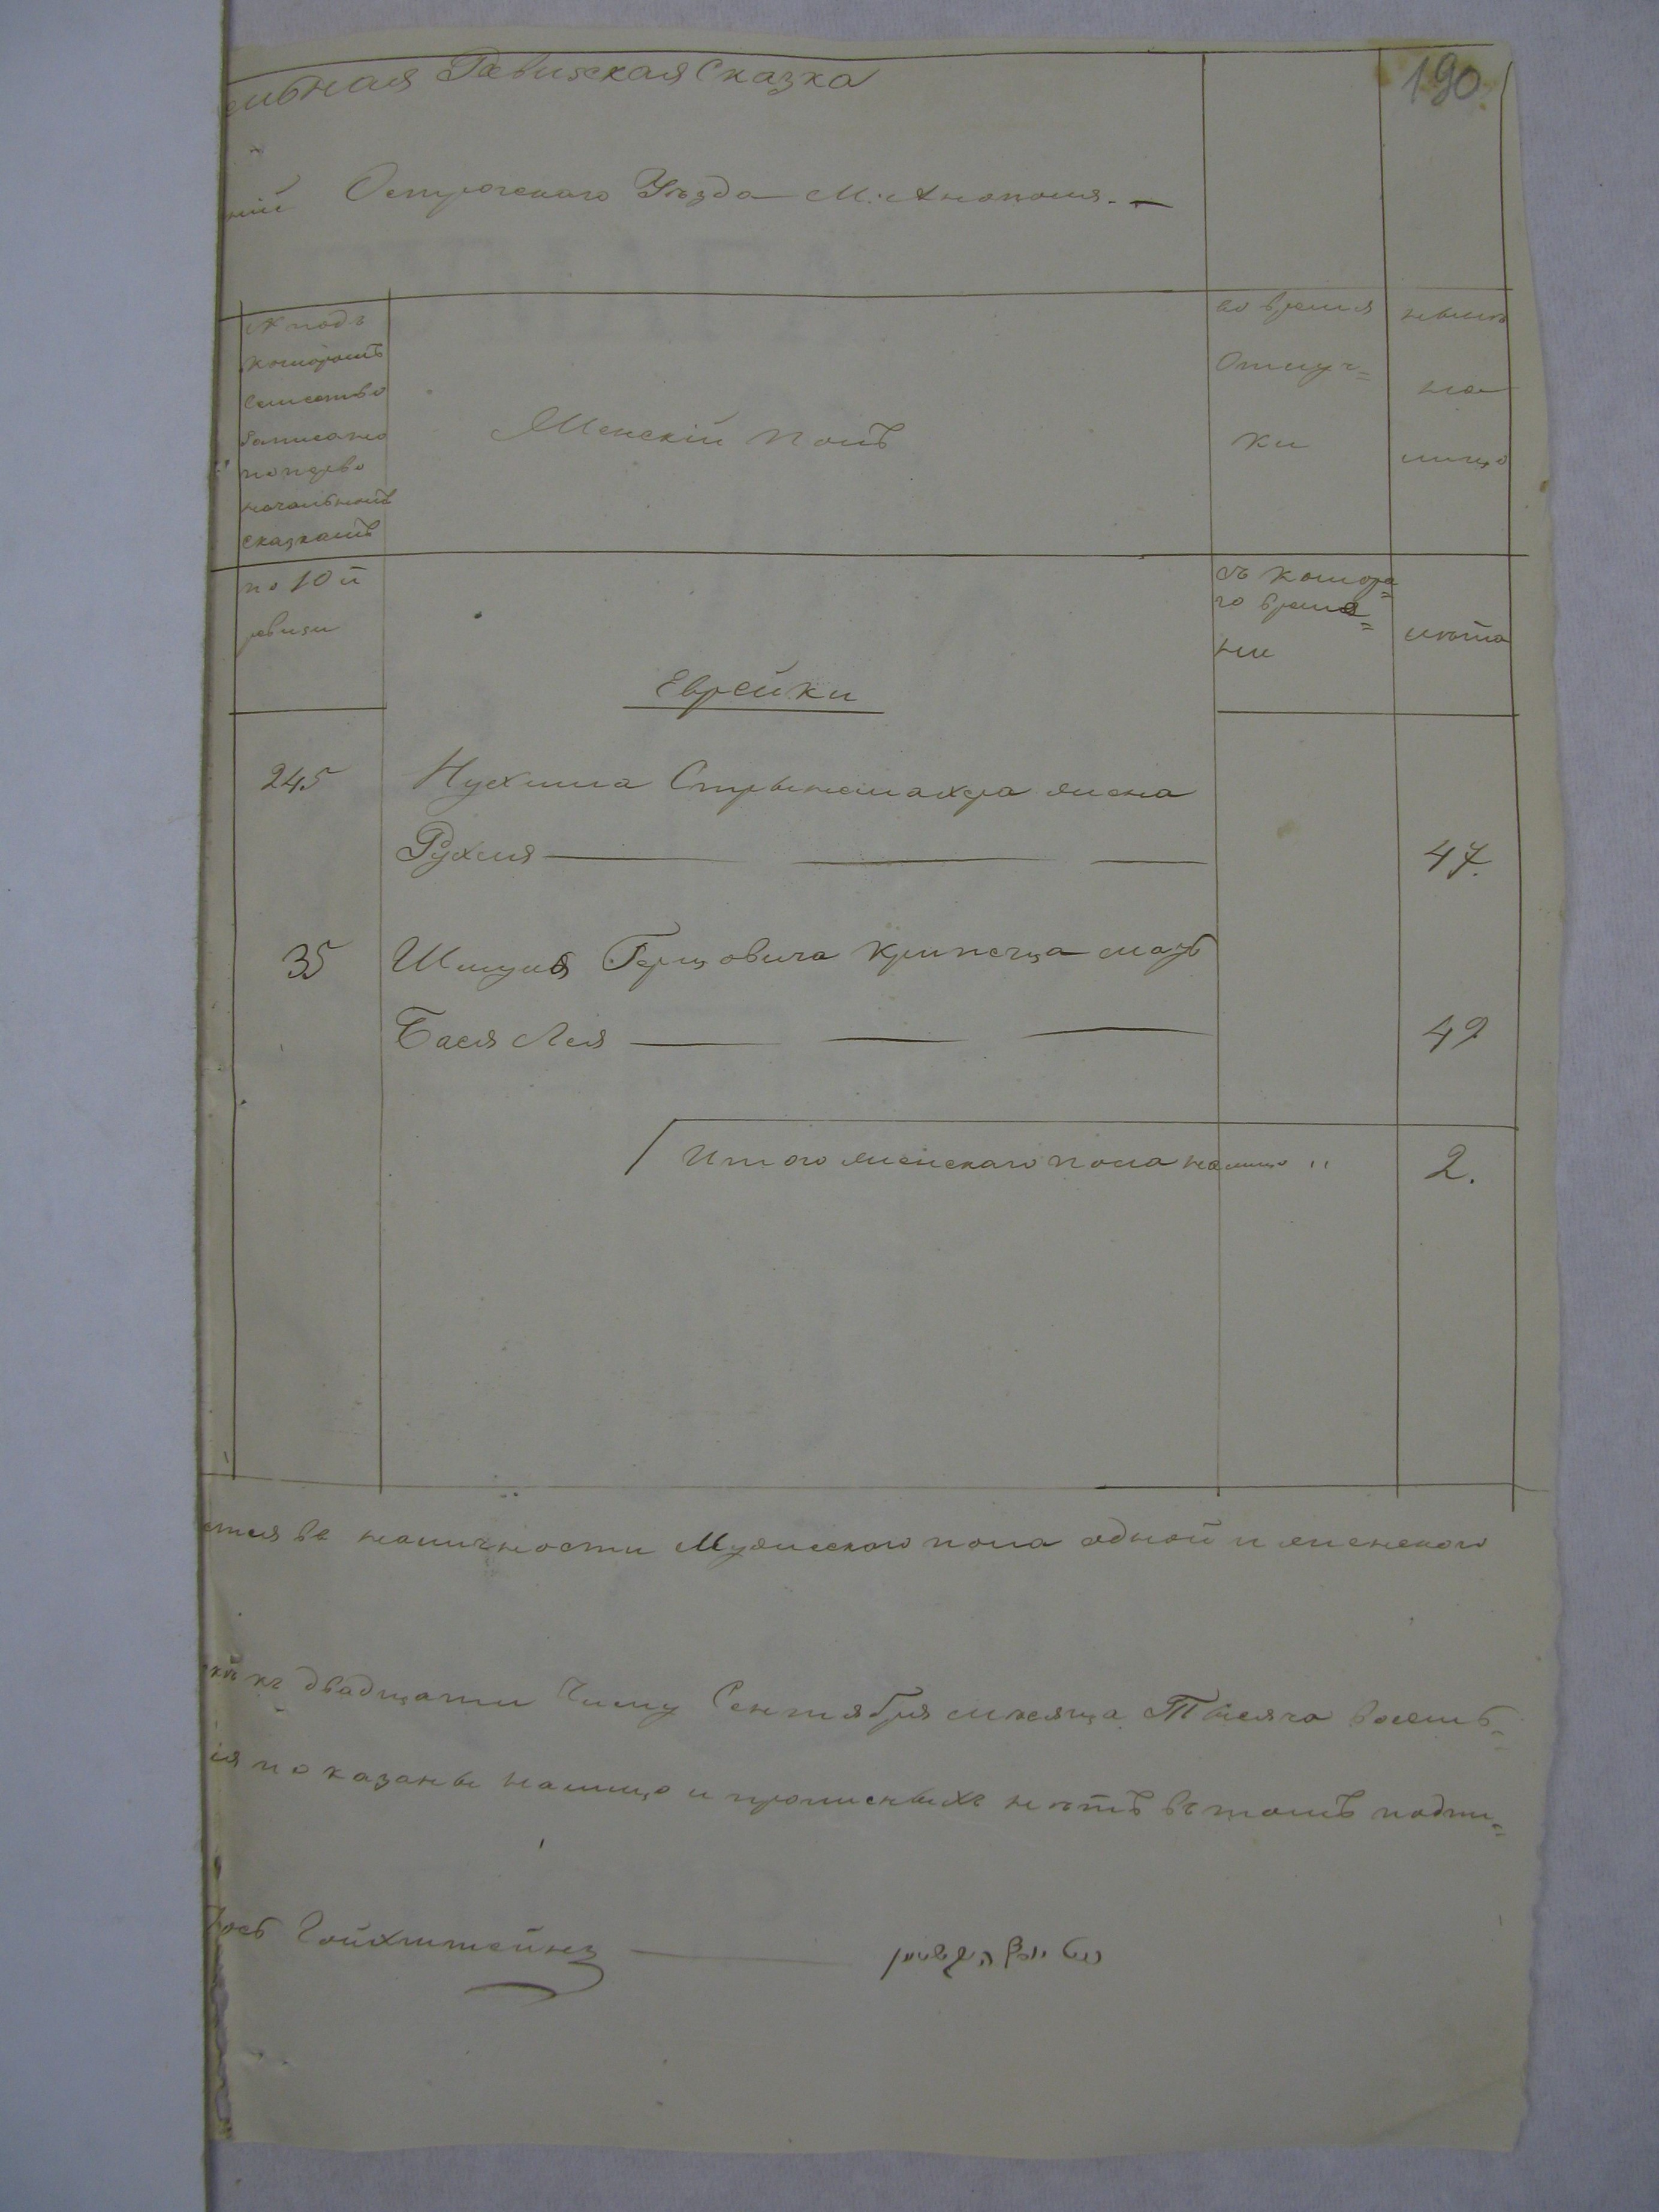 190.
ельная Ревизская Сказка
ній Острожскаго Уѣзда М. Аннополя. —
№ подъ
которомъ
семейство
записано
по перво
начальнымъ
сказкамъ
Женскій полъ
во время
Отлуч=
ки
нынѣ
на
лицо
по 10й
ревизи
съ котора=
го време=
ни
лѣта
Еврейки
245 Нухима жена
Рухля — — — 47.
35 Герцовича мать
Бася Лея — — — 49
Итого женскаго пола налицо " 2.
ется въ наличности Мужескаго пола одной и женскаго
къ двадцати Числу Сентября мѣсяца Тысяча восемь=
ія показаны налицо и прописныхъ нѣтъ въ томъ подпи=
Гойхштейнъ —